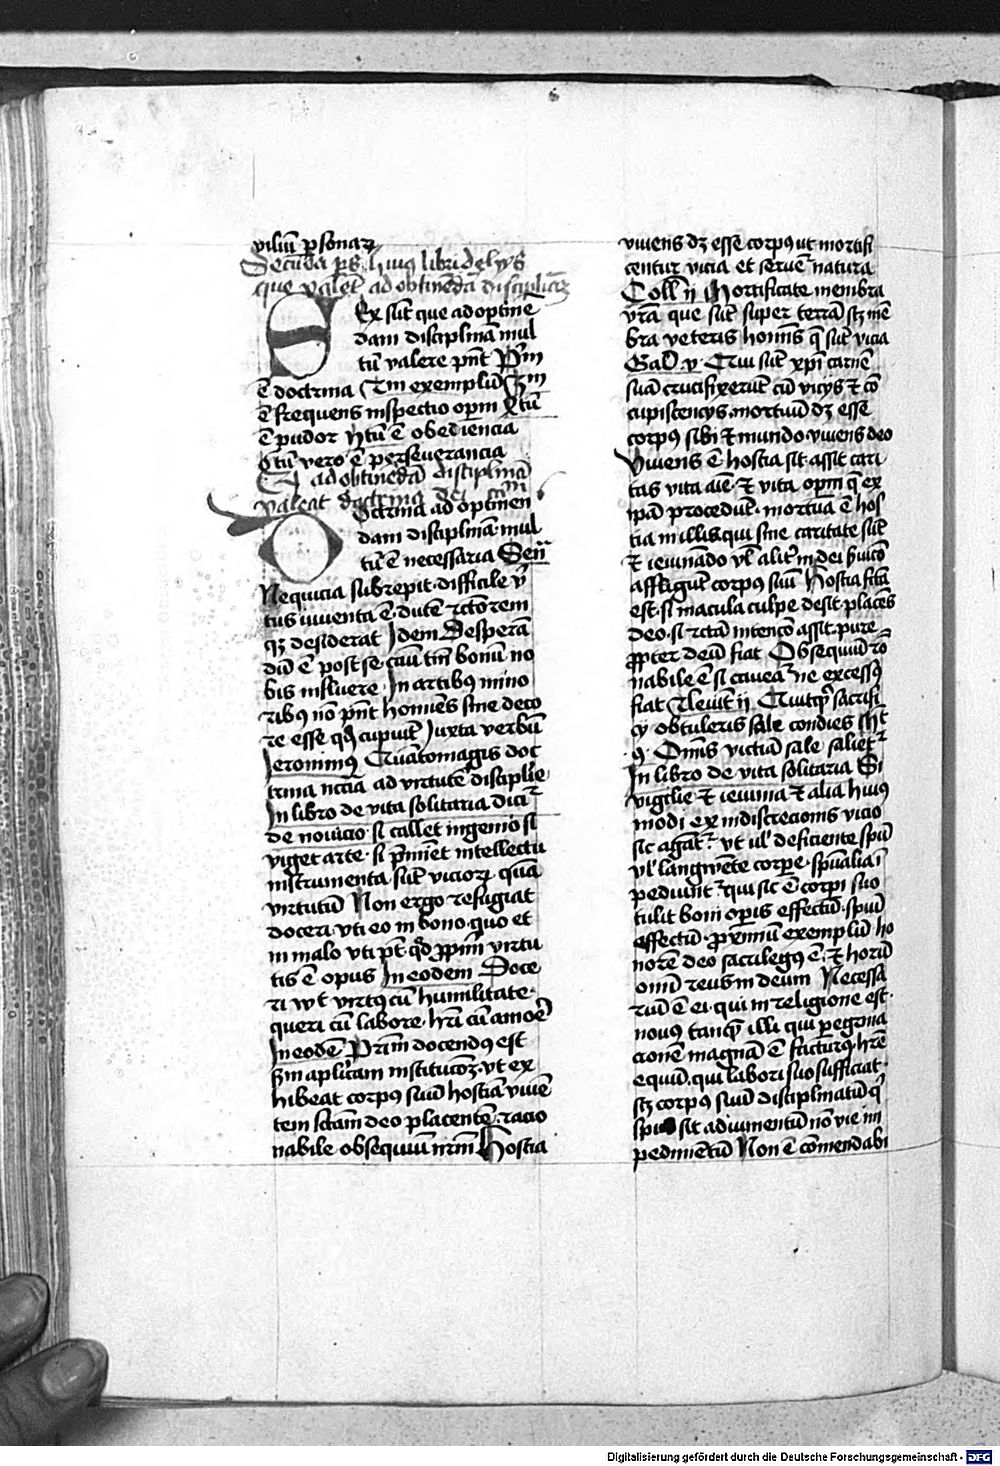 viliū ꝑsonaꝝ
Secūda ps huiꝰ libri de hijs
que valēt ad obtinēdā disciplinā
Sex sūt que ad optinē
dam disciplinā mul
tū valere pn̄t Pͫm
ē doctrina
ē frequens inspectio
ē pudor ē obediencia
vero ē perseverancia
ad obtinēdā disciplinā
valeat doctrina dei
Doctrina ad optinen
dam disciplinā mul
tū ē necessaria Sen̄
Nequicia subrepit difficile vͬ
tus inventa ē dutē rctōrem
qꝫ desiderat Idem Desperā
dū ē posse
bis influere In artibꝰ mino
ribꝰ nō pn̄t homiēs sine docto
re esse qḋ cupiūt Iuxta verbū
Ieronimꝰ Quātomagis doc
trina nccīa ad virtutē discipline
In libro de vita solitaria diciͬ
de novicio si callet ingenio si
viget arte si p̄minēt intellectu
instrumenta sūt vicioꝝ quā
virtutū Non ergo refugiat
doceri vti eo in bono quo et
in malo vti pt̄ qḋ ꝓpriū virtu
tis ē opus In eodem Doce
ri vult virtꝰ cū humilitate
queri cū labore hr̄i cū amoē
In eodē Prīm docendꝰ est
ẜm aplīcam institucōꝫ vt ex
hibeat corpꝰ suū hostiā vivē
tem sctām deo placentē racio
nabile obsequiū nr̄m Hostia
vivens dꝫ esse corpꝰ ut mortifi
centur vicia et servet͛ natura
Coll̄ ij Mortificate membra
vrā que sūt super terrā scꝫ mē
bra veteris homīs q̄ sūt vicia
Gal v Qui sūt xp̄i carnē
suā crucifixerūt cū vicijs ⁊ cō
cupiscencijs mortuū dꝫ esse
corpꝰ sibi ⁊ mundo vivens deo
Vivens ē hostia si assit cari
tas vita aīe ⁊ vita opm̄ q̄ ex
ipā procedūt mortua ē hos
tia in illis qui sine caritate sūt
⁊ ieiunādo vl̄ alit͛ in dei
affligūt corpꝰ suū Hostia scta
est si macula culpe desit placēs
deo si rctā intencō assit pure
ꝓpter deū fiat Obsequiū rō
nabile ē si caveaͬ ne excessꝰ
fiat Levit̄ ij Quitqͥd sacrifi
cij obtuleris sale condies
Omīs victīa sale salietͬ
In libro de vita solitaria Si
vigilie ⁊ ieiunia ⁊ alia huiꝰ
modi ex indiscrecionis vicio
sic agātͬ vt vl̄ deficiente spū
vl̄ langwēte corpore spūalia ī
pediunt͛ qui sic ē corpi suo
tulit boni operis effectū spūi
affectū ꝓximū exemplū ho
norē deo sacrilegꝰ ē ⁊ horū
omīū reus in deum Necessa
riū ē ei qui in religione est
novꝰ tanqͣ illi qui peregrina
cionē magnā ē facturꝰ hr̄e
equū qui labori suo sufficiat
scꝫ corpꝰ suū disciplinatū qͥ
spūs sit adiumentū nō vie im
pedimētū Non ē cōmendabi
Digitalisierung gefördert durch die Deutsche Forschungsgemeinschaft - DFG